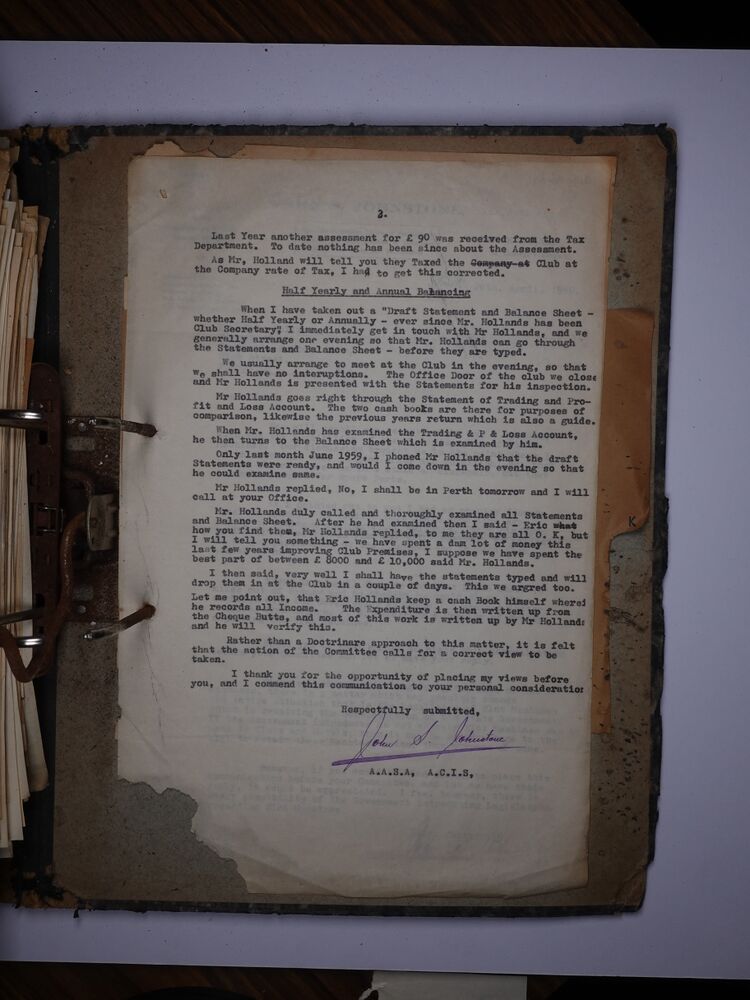 2.
Last Year another assessment for £ 90 was received from the Tax
Department. To date nothing has been since about the Assessment.
As Mr, Holland will tell you they Taxed the Company at Club at
the Company rate of Tax, I had to get this corrected.
Half Yearly and Annual Balancing
When I have taken out a "Draft Statement and Balance Sheet -
whether Half Yearly or Annually - ever since Mr. Hollands has been
Club Secretary" I immediately get in touch with Mr Hollands, and we
generally arrange one evening so that Mr. Hollands can go through
the Statements and Balance Sheet - before they are typed.
We usually arrange to meet at the Club in the evening, so that
we shall have no interuptions. The Office Door of the club we close
and Mr Hollands is presented with the Statements for his inspection.
Mr Hollands goes right through the Statement of Trading and Pro-
fit and Loss Account. The two cash books are there for purposes of
comparison, likewise the previous years return which is also a guide.
When Mr. Hollands has examined the Trading & P & Loss Account,
he then turns to the Balance Sheet which is examined by him.
Only last month June 1959, I phoned Mr Hollands that the draft
Statements were ready, and would I come down in the evening so that
he could examine same.
Mr Hollands replied, No, I shall be in Perth tomorrow and I will
call at your Office.
Mr. Hollands duly called and thoroughly examined all Statements
and Balance Sheet. After he had examined then I said - Eric what
how you find them, Mr Hollands replied, to me they are all O. K, but
I will tell you something - we have spent a dam lot of money this
last few years improving Club Premises, I suppose we have spent the
best part of between £ 8000 and £ 10,000 said Mr. Hollands.
I then said, very well I shall have the statements typed and will
drop them in at the Club in a couple of days. This we argred too.
Let me point out, that Eric Hollands keep a cash Book himself wherei
he records all Income. The Expenditure is then written up from
the Cheque Butts, and most of this work is written up by Mr Hollands
and he will verify this.
Rather than a Doctrinare approach to this matter, it is felt
that the action of the Committee calls for a correct view to be
taken.
I thank you for the opportunity of placing my views before
you, and I commend this communication to your personal consideration
Respectfully submitted,
John S. Johnstone
A.A.S.A, A.C.I.S,
K